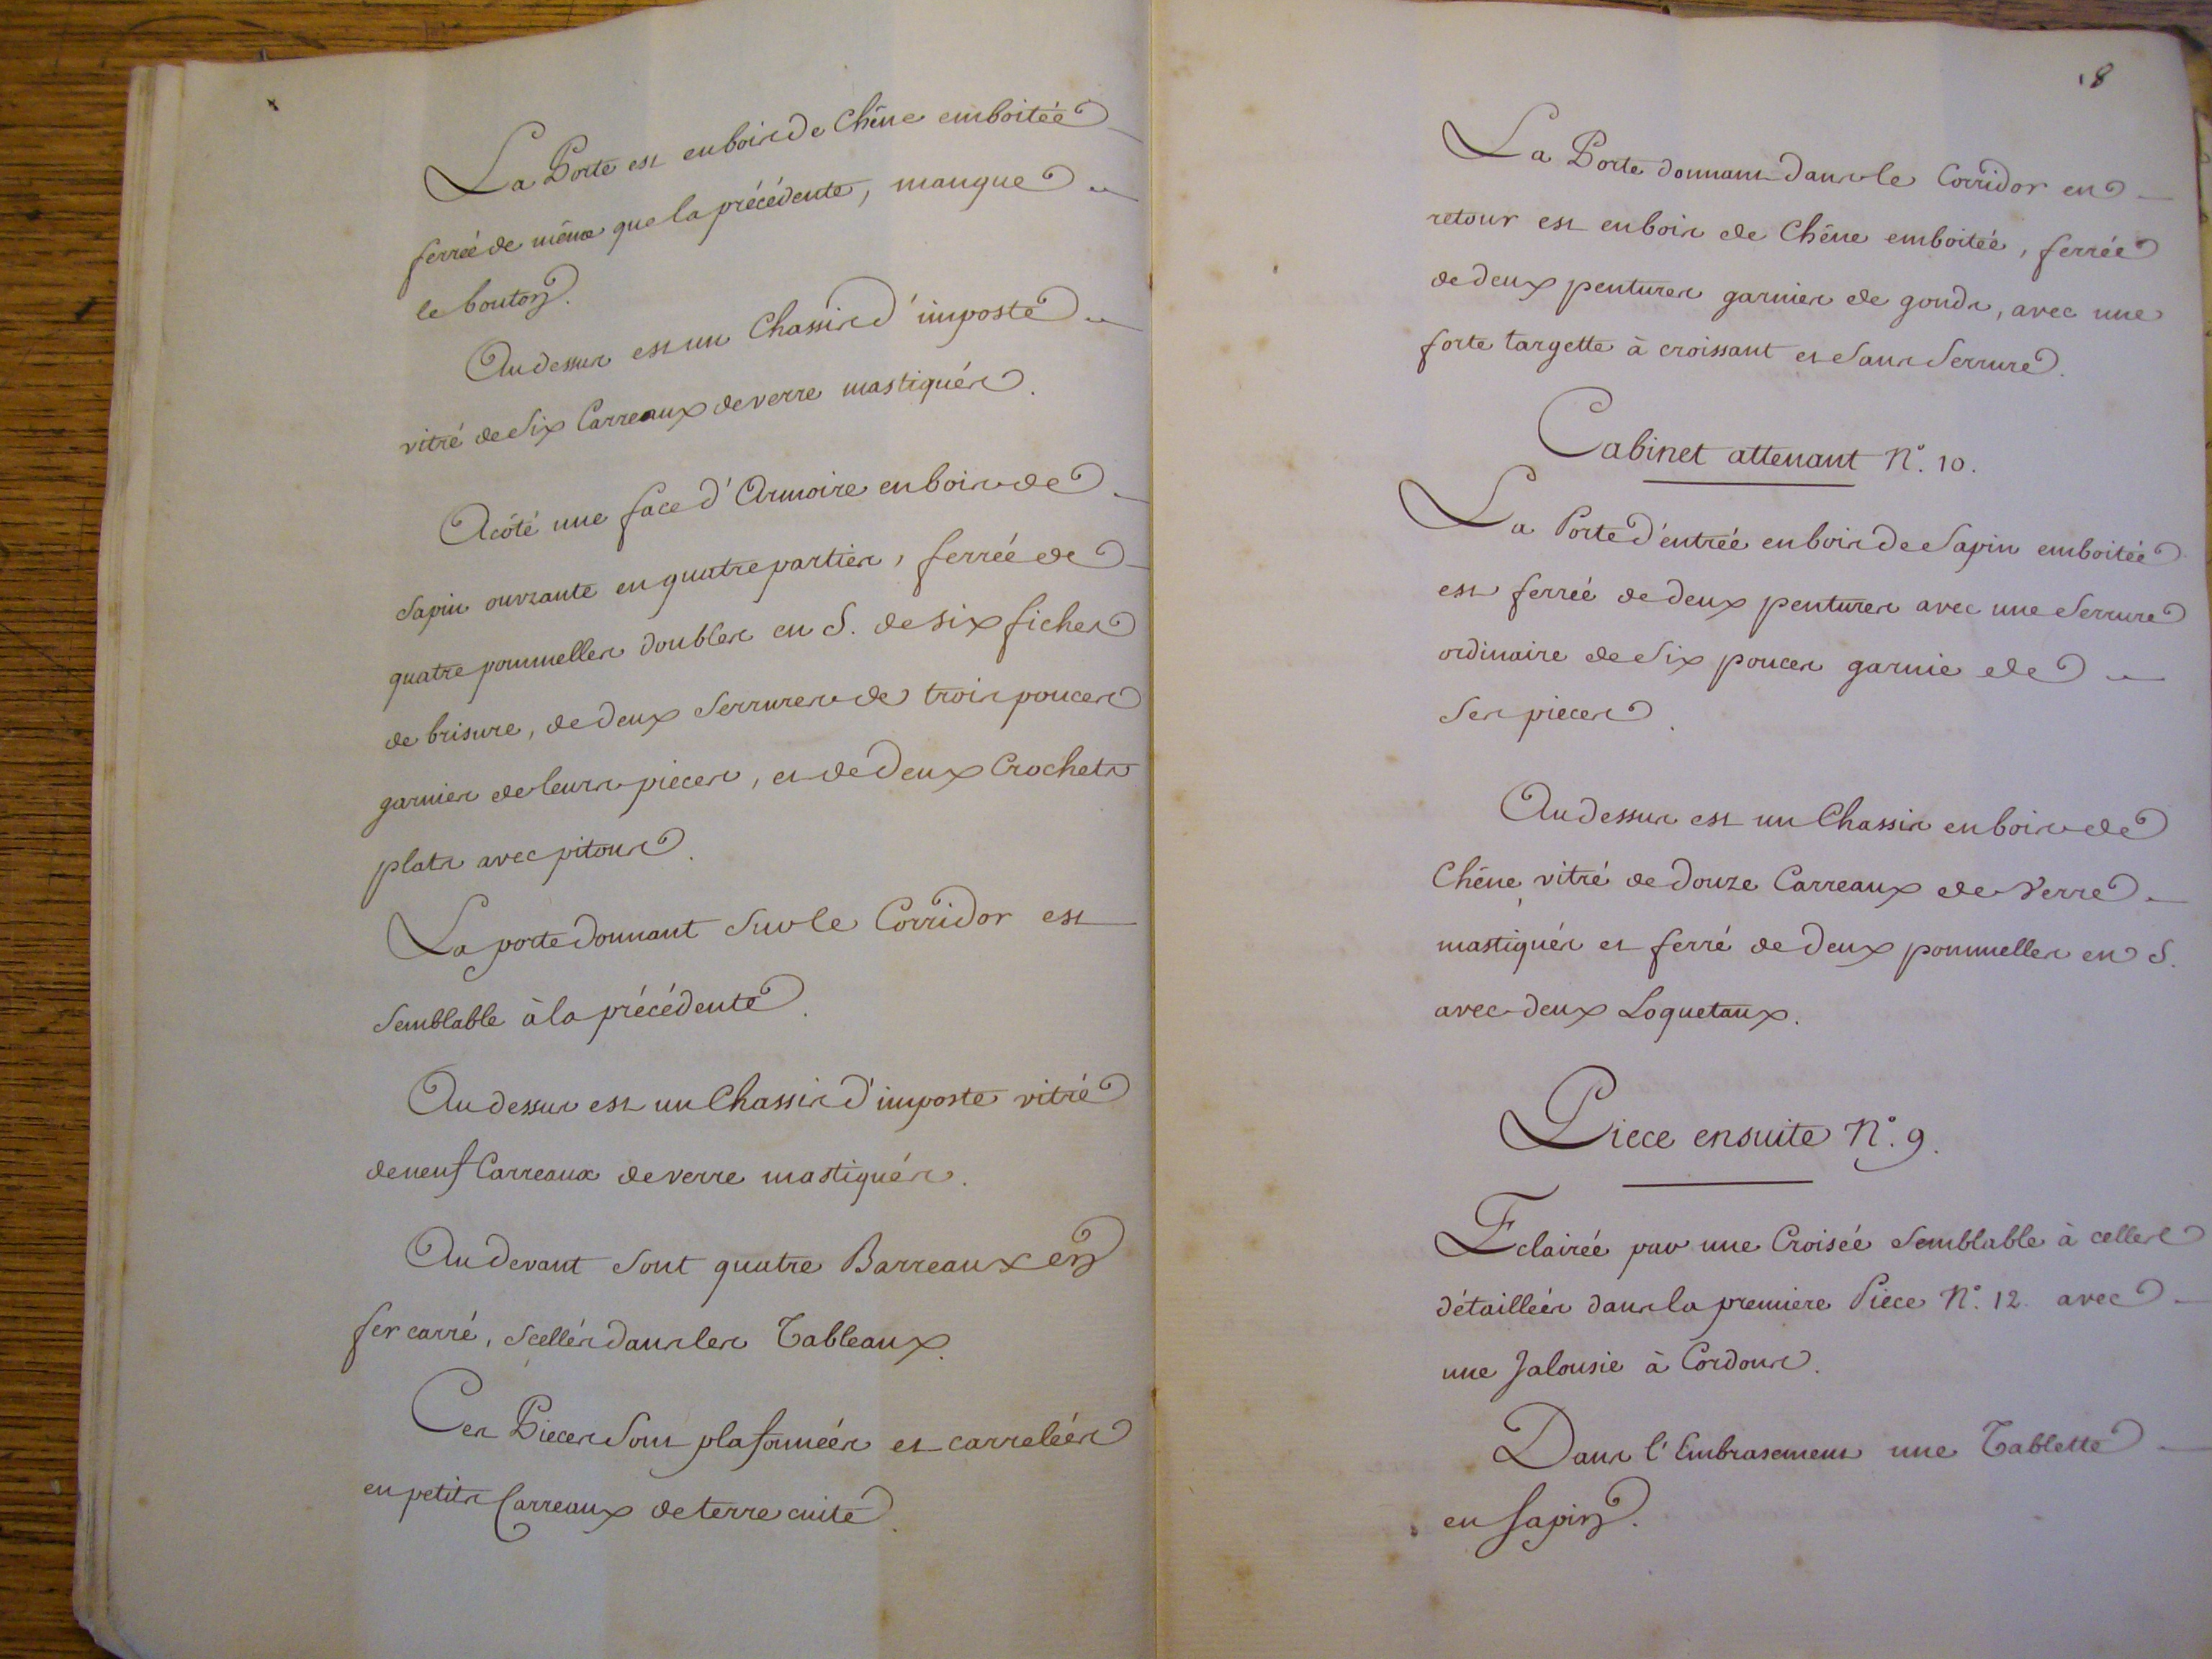 La Porte est en bois de Chêne emboitée
ferrée de même que la précédente, manque
le bouton.
Au dessus est un Chassis d'imposte
vitré de Six Carreaux de verre mastiqués.
A côté une face d'Armoire en bois de
Sapin ouvrante en quatre parties, ferrée de
quatre pommelles doubles en S. de six fiches
de brisure, de deux Serrures de trois pouces
garnies de leurs pieces, et de deux Crochets
plats avec pitons.
La porte donnant Sur le Corridor est
Semblable à la précédente.
Au dessus est un Chassis d'imposte vitré
de neuf Carreaux de verre mastiqués.
Au devant Sont quatre Barreaux en
fer carré, Scellés dans les Tableaux.
Ces Pieces Sont plafonnées et carrelées
en petits Carreaux de terre cuite.
8
La Porte donnant dans le Corridor en
retour est en bois de Chêne emboitée, ferrée
de deux pentures garnies de gonds, avec une
forte targette à croissant et Sans Serrure.
Cabinet attenant N.° 10.
La Porte d'entrée en bois de Sapin emboitée
est ferrée de deux pentures avec une Serrure
ordinaire de Six pouces garnie de
Ses pieces.
Au dessus est un Chassis en bois de
Chêne, vitré de douze Carreaux de Verre
mastiqués et ferré de deux pommelles en S.
avec deux Loquetaux.
Piece ensuite N.° 9.
Eclairée par une Croisée Semblable à celles
détaillées dans la premiere Piece N.° 12. avec
une Jalousie à Cordons.
Dans l'Embrasement une Tablette
en Sapin.